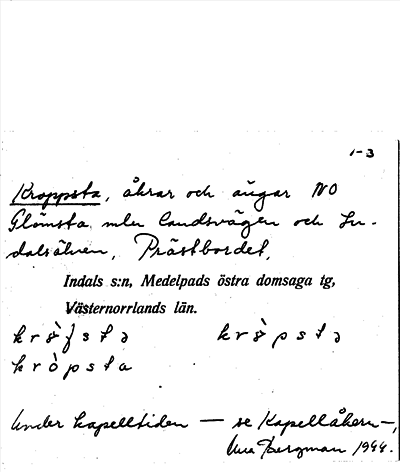 1-3
Kroppsta, åkrar och ängar NO
Glömsta mln landsvägen och In-
dalsälven, Prästbordet.
Indals s:n, Medelpads östra domsaga tg,
Västernorrlands län.
krò̀fstə krò̀pstə
kròpsta
Under kapelltiden — se Kapellåkern —,
Bergman 1944.